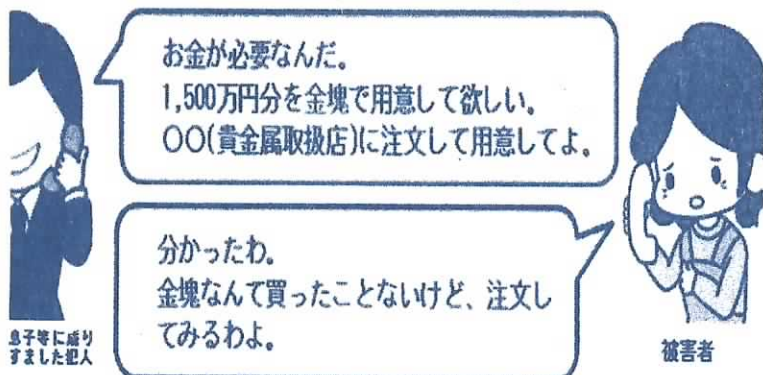 お金が必要なんだ。
1,500万円分を金塊で用意して欲しい。
〇〇(貴金属取扱店)に注文して用意してよ。
分かったわ。
金塊なんて買ったことないけど、注文し
てみるわよ。
息子等に成り
すました犯人
被害者